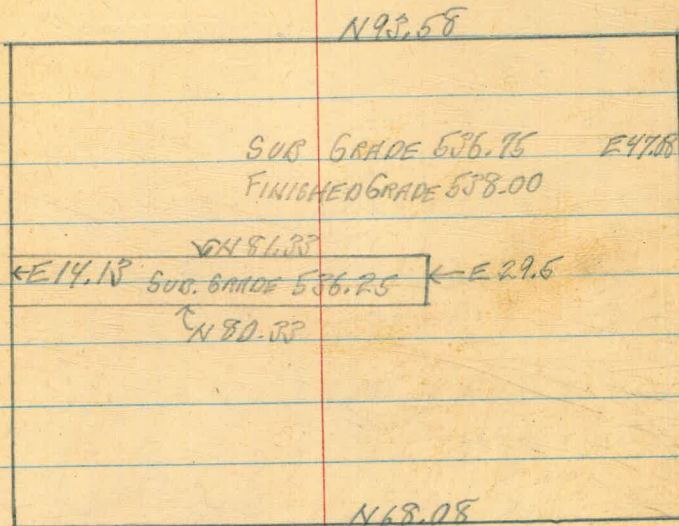 N93.58
SUB GRADE 536.75 E47.08
FINISHED GRADE 538.00
N 81.33
←E 14.13 SUB. GRADE 536.25 ← E 29.5
N 80.33
N68.08